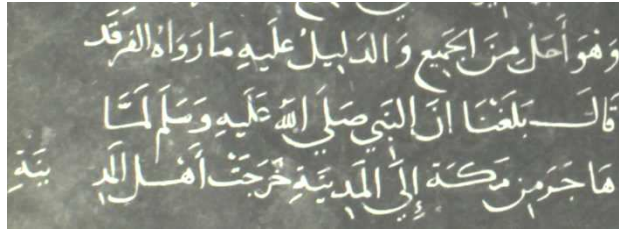 وَهْوَ أَحَلُّ مِنَ الجَمِيعِ وَالدَلِيلُ عَلَيهِ مَا رَوَاهُ الفَرقَد
قَالَ بَلَغَنَا انَ النَبِي صَلَي اللَّه عَلَيهِ وَسَلَم لَمَّا
هَاجَرَ مِن مَكَةَ إِلَي المَدِينَةِ خَرَجَتْ أَهْل المَدِ ينَةِ